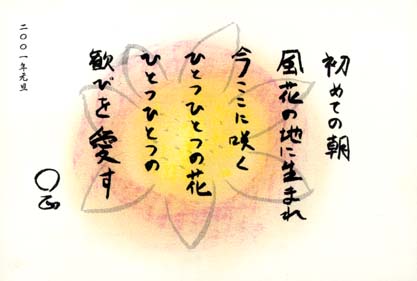 初めての朝
風花の地に生まれ
今ここに咲く
ひとつひとつの花
ひとつひとつの
歓びを愛す
二〇〇一年元旦